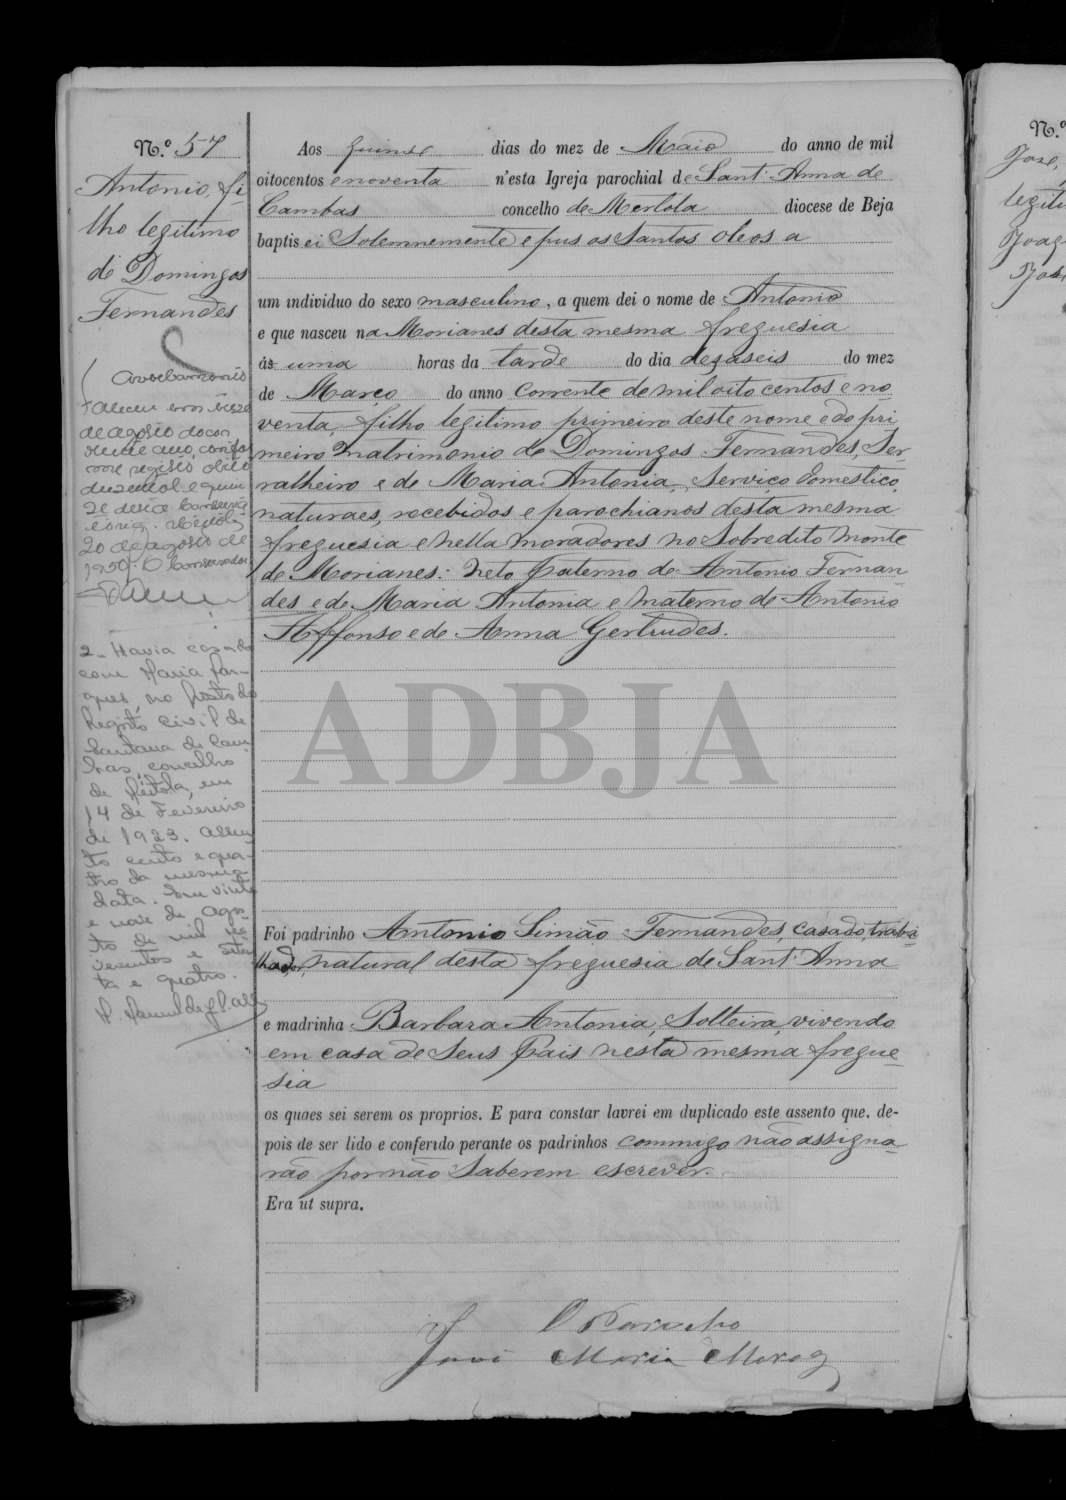 N.º 57
Antonio, fi-
lho legitimo
de Domingos
Fernandes
Averbamento
Faleceu
de agosto do cor
rente ano, confor
me registo
20 de agosto de
O Conservador
2- Havia casado
com Maria
no Posto do
Registo Civil de
Santana de Cam
bas, concelho
de Mértola, em
14 de Fevereiro
de 1923. Assen
to cento e qua-
tro da mesma
data. Em vinte
e nove de Agos-
to de mil no-
vecentos e seten
ta e quatro.
Aos quinse dias do mez de Maio do anno de mil
oitocentos e noventa n'esta Igreja parochial de Sant'Anna de
Cambas concelho de Mertola diocese de Beja
baptisei Solemnemente e pus os Santos oleos a
um individuo do sexo masculino, a quem dei o nome de Antonio
e que nasceu na Morianes desta mesma freguesia
ás uma horas da tarde do dia desaseis do mez
de Março do anno corrente de mil oito centos e no
venta, filho legitimo primeiro deste nome e do pri
meiro matrimonio de Domingos Fernandes, Ser-
ralheiro e de Maria Antonia, Serviço domestico,
naturaes, recebidos e parochianos desta mesma
freguesia e nella moradores no sobredito monte
de Morianes: Neto paterno de Antonio Fernan-
des e de Maria Antonia e materno de Antonio
Affonso e de Anna Gertrudes.
ADBJA
Foi padrinho Antonio Simão Fernandes, casado, traba-
lhador, natural desta freguesia de Sant'Anna
e madrinha Barbara Antonia, Solteira, vivendo
em casa de Seus Pais nesta mesma fregue-
sia
os quaes sei serem os proprios. E para constar lavrei em duplicado este assento que, de-
pois de ser lido e conferido perante os padrinhos commigo não assigna-
rão por não Saberem escrever.
Era ut supra.
O Parocho
José Maria
N.º
José,
legiti
Joaq
José